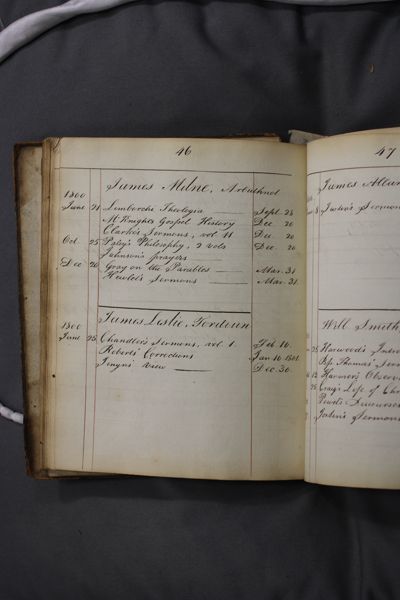 46
James Milne, Arbuthnot
1800
June 21 Limborchi Theologia Sept. 28
McKnight's Gospel History Dec. 20
Clarke's Sermons, vol 11 Dec. 20
Oct. 25 Paley's Philosophy, 2 vols Dec. 20
Johnson's prayers
Dec 20 Gray on the Parables Mar. 31
Hewlet's Sermons Mar. 31
James Leslie, Fordoun
1800
June 25 Chandler's Sermons, vol. 1. Feb 10.
Robert's Corrections Jan 10. 1801.
Jenyns' view Dec. 30.
47
James Allan
Jortin's Sermons
Will Smith
25 Harwood's Introd
Bp. Thomas' Serm
12 Farmer's Observ
Craig's Life of Chr
Jortin's Sermons